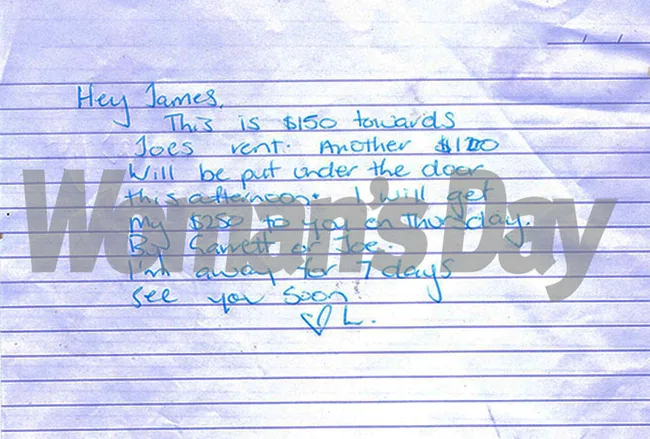 Hey James,
This is $150 towards
Joes rent. Another $100
Will be put under the door
this afternoon. I will get
my $250 to you on Thursday.
By Garrett or Joe.
I'm away for 7 days
see you soon
♡ L.
Woman's Day